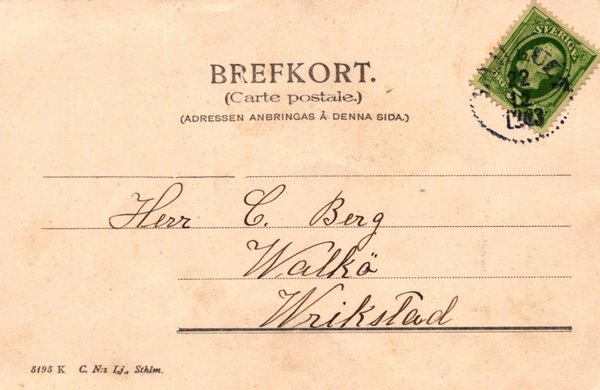 SVERIGE
22
12
1903
BREFKORT.
(Carte postale.)
(ADRESSEN ANBRINGAS Å DENNA SIDA.)
Herr C. Berg
Walkö
Wrikstad
5195 K C. N:s Lj., Sthlm.